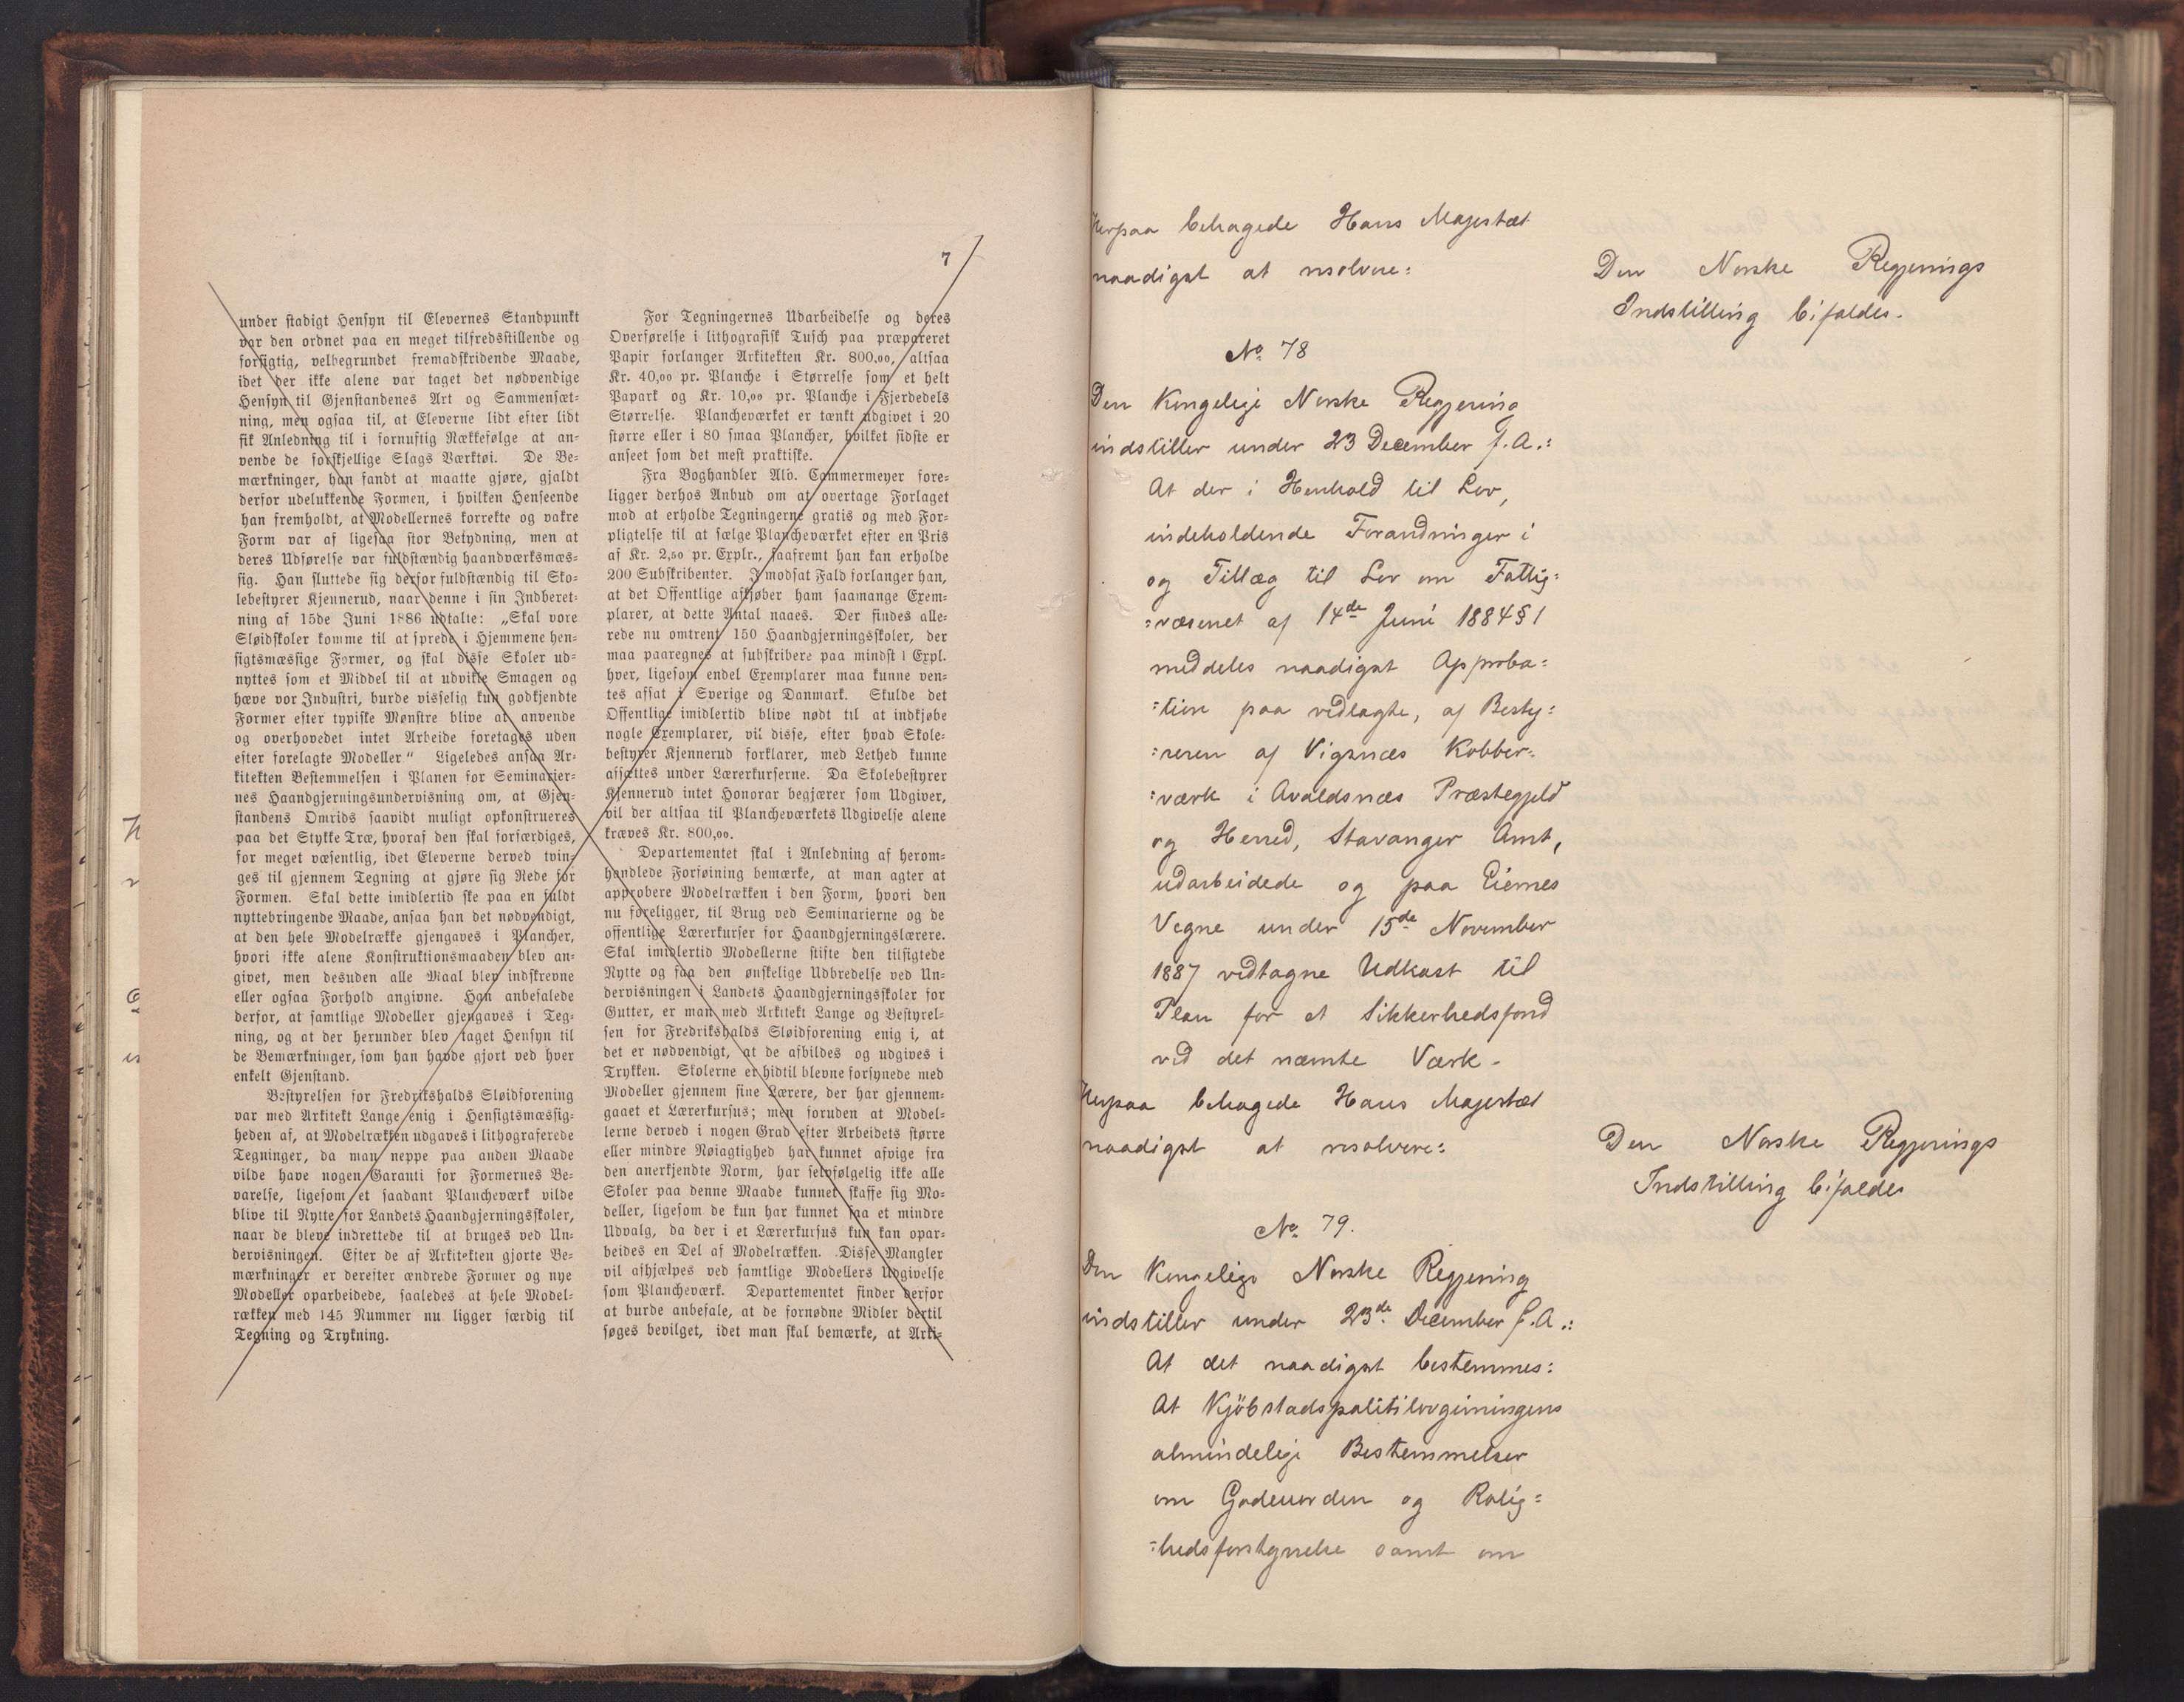 7
under stadigt Hensyn til Elevernes Standpunkt
var den ordnet paa en meget tilfredsstillende og
forsigtig, velbegrundet fremadskridende Maade,
idet der ikke alene var taget det nødvendige
Hensyn til Gjenstandenes Art og Sammensæt-
ning, men ogsaa til, at Eleverne lidt efter lidt
fik Anledning til i fornuftig Rækkefølge at an-
vende de forskjellige Slags Værktøi. De Be-
mærkninger, han fandt at maatte gjøre, gjaldt
derfor udelukkende Formen, i hvilken Henseende
han fremholdt, at Modellernes korrekte og vakre
Form var af ligesaa stor Betydning, men at
deres Udførelse var fuldstændig haandværksmæs-
sig. Han sluttede sig derfor fuldstændig til Sko-
lebestyrer Kjennerud, naar denne i sin Indberet-
ning af 15de Juni 1886 udtalte: „Skal vore
Sløidskoler komme til at sprede i Hjemmene hen-
sigtsmæssige Former, og skal disse Skoler ud-
nyttes som et Middel til at udvikle Smagen og
hæve vor Industri, burde visselig kun godkjendte
Former efter typiske Mønstre blive at anvende
og overhovedet intet Arbeide foretages uden
efter forelagte Modeller“ Ligeledes ansaa Ar-
kitekten Bestemmelsen i Planen for Seminarier-
nes Haandgjerningsundervisning om, at Gjen-
standens Omrids saavidt muligt opkonstrueres
paa det Stykke Træ, hvoraf den skal forfærdiges,
for meget væsentlig, idet Eleverne derved tvin-
ges til gjennem Tegning at gjøre sig Rede for
Formen. Skal dette imidlertid ske paa en fuldt
nyttebringende Maade, ansaa han det nødvendigt,
at den hele Modelrække gjengaves i Plancher,
hvori ikke alene Konstruktionsmaaden blev an-
givet, men desuden alle Maal blev indskrevne
eller ogsaa Forhold angivne. Han anbefalede
derfor, at samtlige Modeller gjengaves i Teg-
ning, og at der herunder blev taget Hensyn til
de Bemærkninger, som han havde gjort ved hver
enkelt Gjenstand.
Bestyrelsen for Fredrikshalds Sløidforening
var med Arkitekt Lange enig i Hensigtsmæssig-
heden af, at Modelrækken udgaves i lithograferede
Tegninger, da man neppe paa anden Maade
vilde have nogen Garanti for Formernes Be-
varelse, ligesom et saadant Plancheværk vilde
blive til Nytte for Landets Haandgjerningsskoler,
naar de bleve indrettede til at bruges ved Un-
dervisningen. Efter de af Arkitekten gjorte Be-
mærkninger er derefter ændrede Former og nye
Modeller oparbeidede, saaledes at hele Model-
rækken med 145 Nummer nu ligger færdig til
Tegning og Trykning.
For Tegningernes Udarbeidelse og deres
Overførelse i lithografisk Tusch paa præpareret
Papir forlanger Arkitekten Kr. 800,00, altsaa
Kr. 40,00 pr. Planche i Størrelse som et helt
Papark og Kr. 10,00 pr. Planche i Fjerdedels
Størrelse. Plancheværket er tænkt udgivet i 20
større eller i 80 smaa Plancher, hvilket sidste er
anseet som det mest praktiske.
Fra Boghandler Alb. Cammermeyer fore-
ligger derhos Anbud om at overtage Forlaget
mod at erholde Tegningerne gratis og med For-
pligtelse til at sælge Plancheværket efter en Pris
af Kr. 2,50 pr. Explr., saafremt han kan erholde
200 Subskribenter. I modsat Fald forlanger han,
at det Offentlige afkjøber ham saamange Exem-
plarer, at dette Antal naaes. Der findes alle-
rede nu omtrent 150 Haandgjerningsskoler, der
maa paaregnes at subskribere paa mindst 1 Expl.
hver, ligesom endel Exemplarer maa kunne ven-
tes afsat i Sverige og Danmark. Skulde det
Offentlige imidlertid blive nødt til at indkjøbe
nogle Exemplarer, vil disse, efter hvad Skole-
bestyrer Kjennerud forklarer, med Lethed kunne
afsættes under Lærerkurserne. Da Skolebestyrer
Kjennerud intet Honorar begjærer som Udgiver,
vil der altsaa til Plancheværkets Udgivelse alene
kræves Kr. 800,00.
Departementet skal i Anledning af herom-
handlede Forføining bemærke, at man agter at
approbere Modelrækken i den Form, hvori den
nu foreligger, til Brug ved Seminarierne og de
offentlige Lærerkurser for Haandgjerningslærere.
Skal imidlertid Modellerne stifte den tilsigtede
Nytte og faa den ønskelige Udbredelse ved Un-
dervisningen i Landets Haandgjerningsskoler for
Gutter, er man med Arkitekt Lange og Bestyrel-
sen for Fredrikshalds Sløidforening enig i, at
det er nødvendigt, at de afbildes og udgives i
Trykken. Skolerne er hidtil blevne forsynede med
Modeller gjennem sine Lærere, der har gjennem-
gaaet et Lærerkursus; men foruden at Model-
lerne derved i nogen Grad efter Arbeidets større
eller mindre Nøiagtighed har kunnet afvige fra
den anerkjendte Norm, har selvfølgelig ikke alle
Skoler paa denne Maade kunnet skaffe sig Mo-
deller, ligesom de kun har kunnet faa et mindre
Udvalg, da der i et Lærerkursus kun kan opar-
beides en Del af Modelrækken. Disse Mangler
vil afhjælpes ved samtlige Modellers Udgivelse
som Plancheværk. Departementet finder derfor
at burde anbefale, at de fornødne Midler dertil
søges bevilget, idet man skal bemærke, at Arki-
Herpaa behagede Hans Majestæt
naadigst at resolvere:
Den Norske Regjerings
Indstilling bifaldes.
No 78
Den Kongelige Norske Regjering
indstiller under 23 December f. A.:
At der i Henhold til Lov,
indeholdende Forandringer i
og Tillæg til Lov om Fattig=
=væsenet af 14de Juni 1884 § 1
meddeles naadigst Approba=
=tion paa vedlagte, af Besty=
=reren af Vigsnæs Kobber=
=værk i Avaldsnæs Præstegjeld
og Herred, Stavanger Amt,
udarbeidede og paa Eiernes
Vegne under 15de November
1887 vedtagne Udkast til
Plan for et Sikkerhedsfond
ved det nævnte Værk.
Herpaa behagede Hans Majestæt
naadigst at resolvere:
Den Norske Regjerings
Indstilling bifaldes
No 79.
Den Kongelige Norske Regjering
indstiller under 23de December f. A.:
At det naadigst bestemmes:
At Kjöbstadspolitilovgivningens
almindelige Bestemmelser
om Gadeuorden og Rolig=
=hedsforstyrrelse samt om